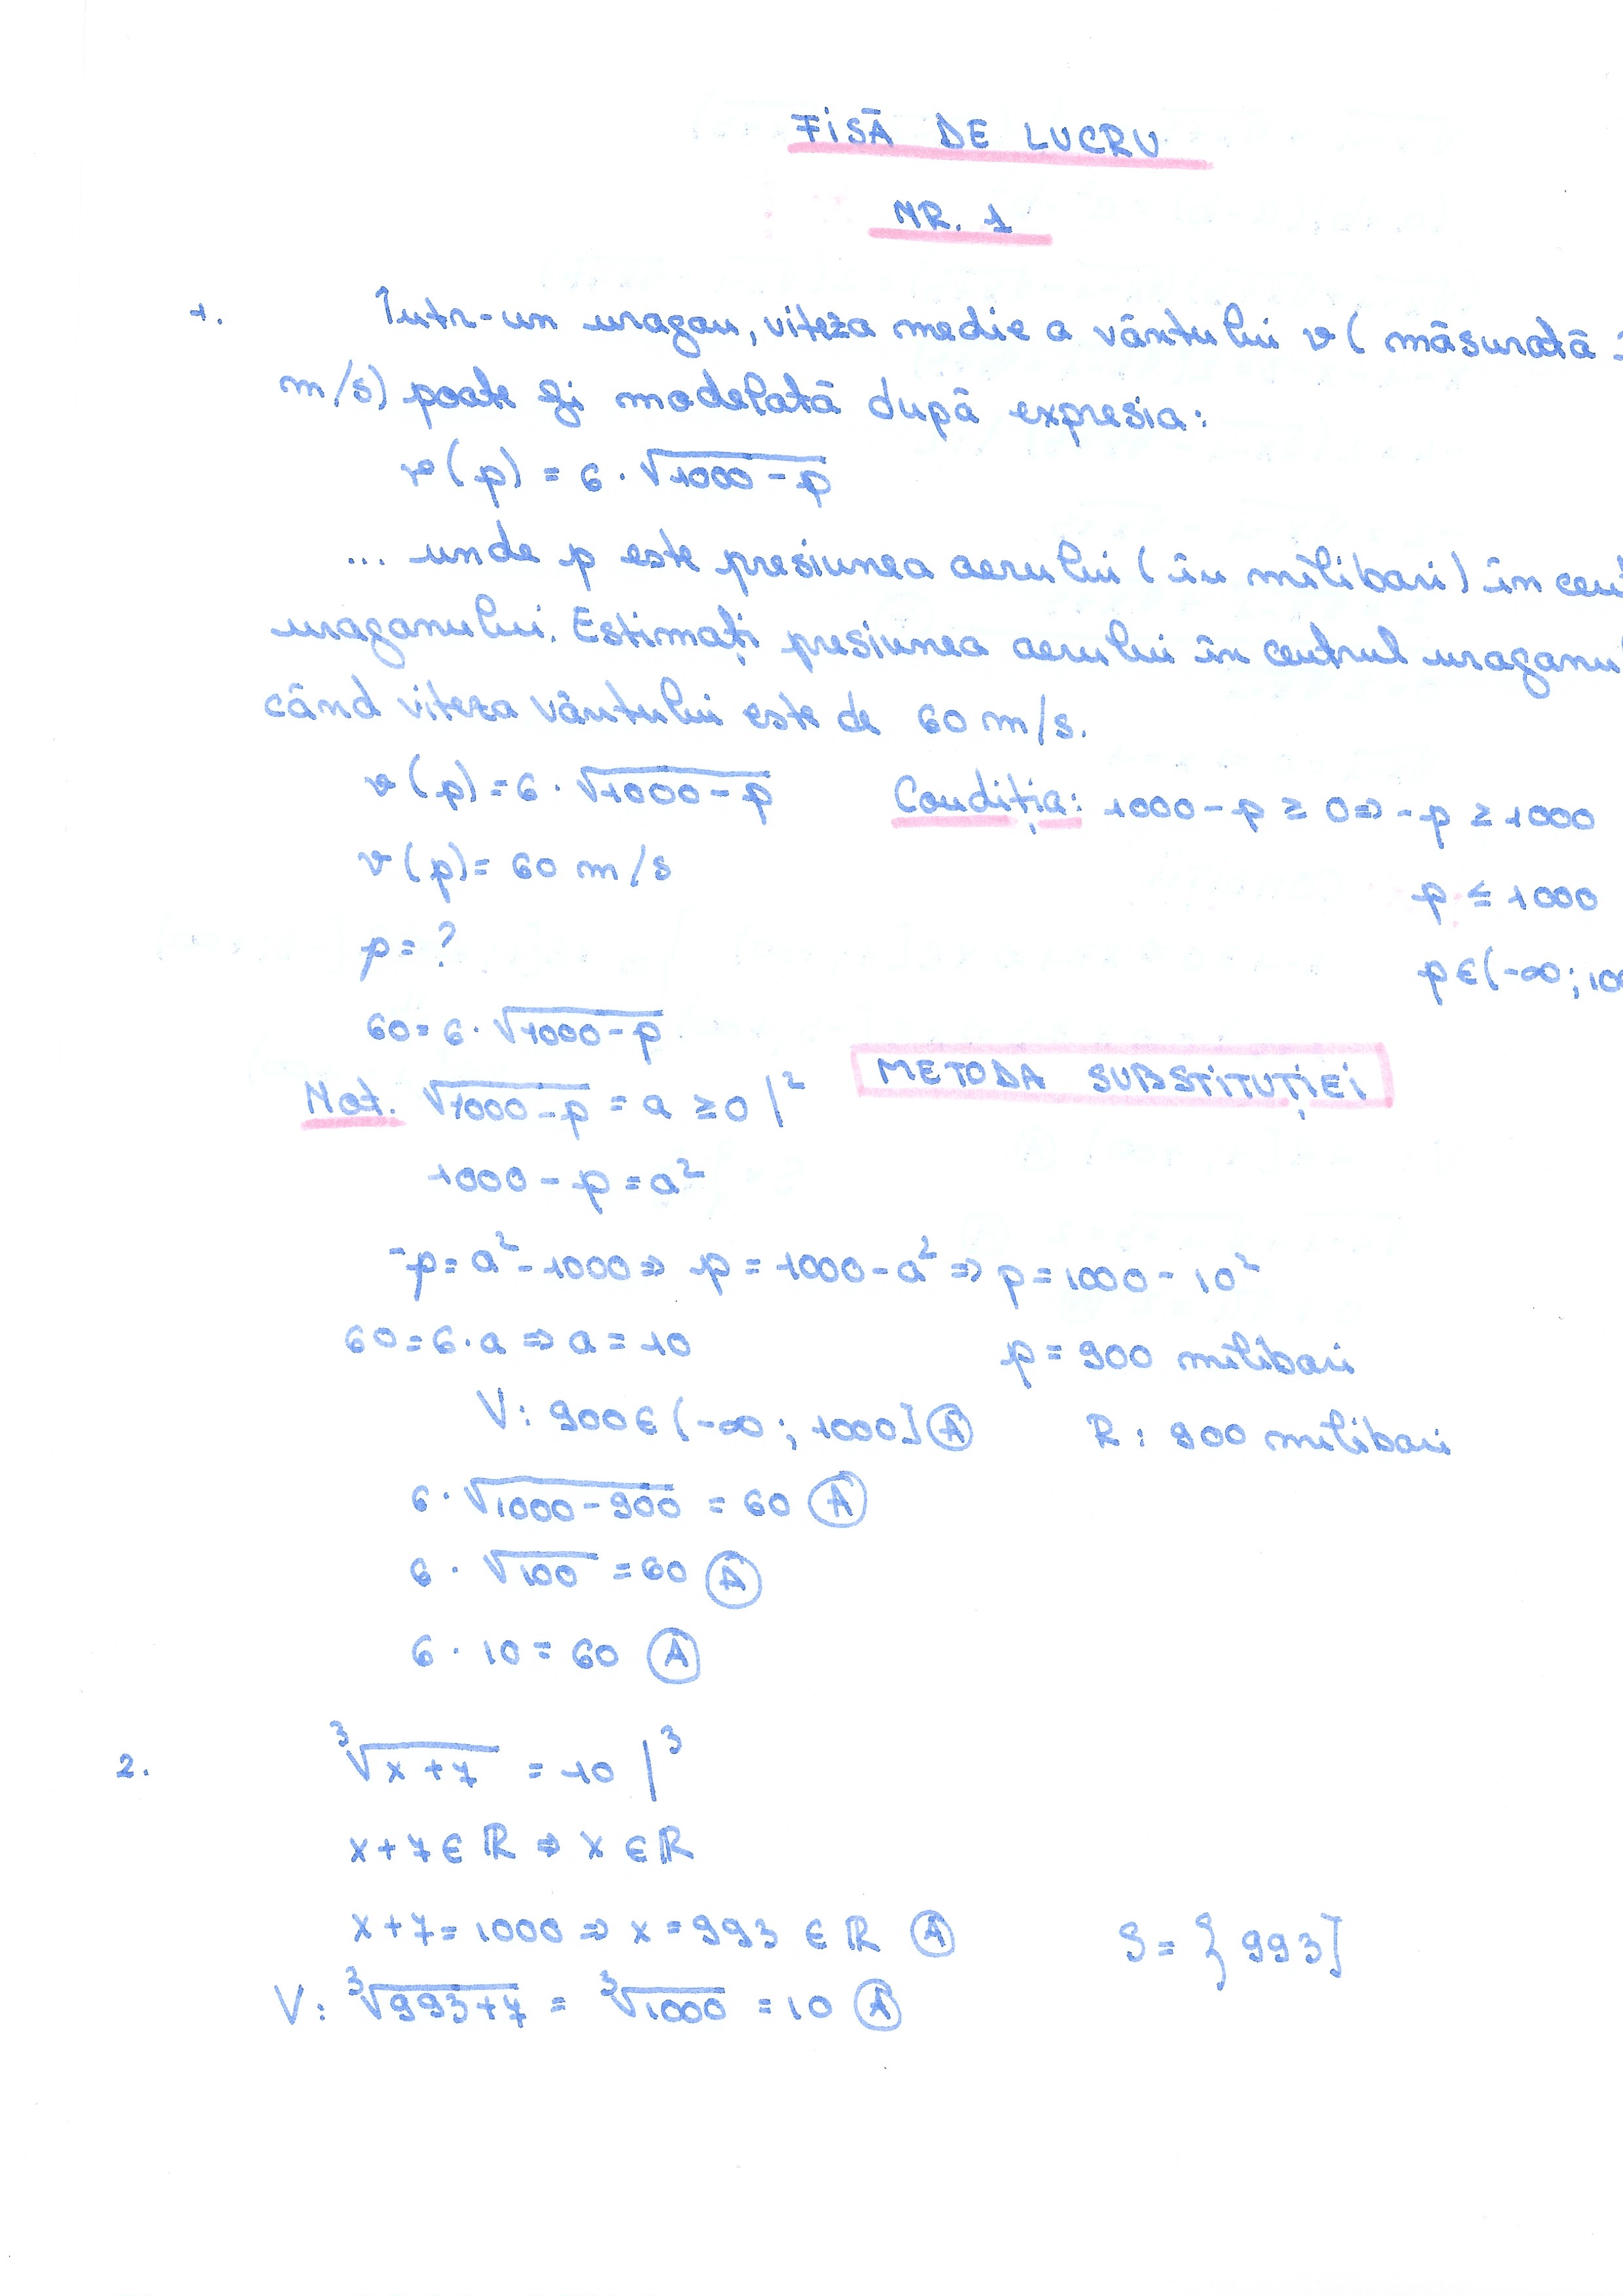 FISĂ DE LUCRU
NR. 1
1. Într-un uragan, viteza medie a vântului v (măsurată
m/s) poate fi modelată după expresia:
v(p) = 6 · √(1000 - p)
... unde p este presiunea aerului (în milibari) în
uraganului. Estimați presiunea aerului în centrul
când viteza vântului este de 60 m/s.
v(p) = 6 · √(1000 - p) Condiția: 1000 - p ≥ 0 ⇒ -p ≥ 1000
v(p) = 60 m/s p ≤ 1000
p = ? p ∈ (-∞;
60 = 6 · √(1000 - p)
Not. √(1000 - p) = a ≥ 0 |² METODA SUBSTITUȚIEI
1000 - p = a²
-p = a² - 1000 ⇒ p = 1000 - a² ⇒ p = 1000 - 10²
60 = 6 · a ⇒ a = 10 p = 900 milibari
V: 900 ∈ (-∞; 1000] Ⓐ R: 900 milibari
6 · √(1000 - 900) = 60 Ⓐ
6 · √100 = 60 Ⓐ
6 · 10 = 60 Ⓐ
2. ³√(x + 7) = 10 |³
x + 7 ∈ ℝ ⇒ x ∈ ℝ
x + 7 = 1000 ⇒ x = 993 ∈ ℝ Ⓐ S = {993}
V: ³√(993 + 7) = ³√1000 = 10 Ⓐ